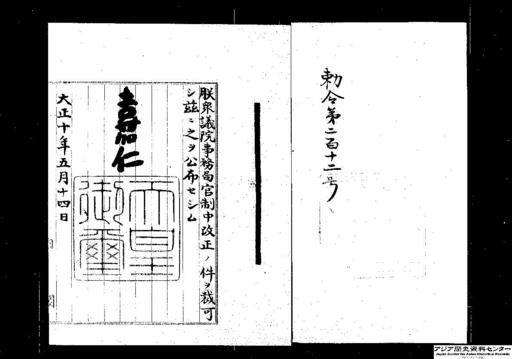 勅令第二百十二号
朕衆議院事務局官制中改正ノ件ヲ裁可
シ茲ニ之ヲ公布セシム
嘉仁
天皇御璽
大正十年五月十四日
アジア歴史資料センター
Japan Center for Asian Historical Records